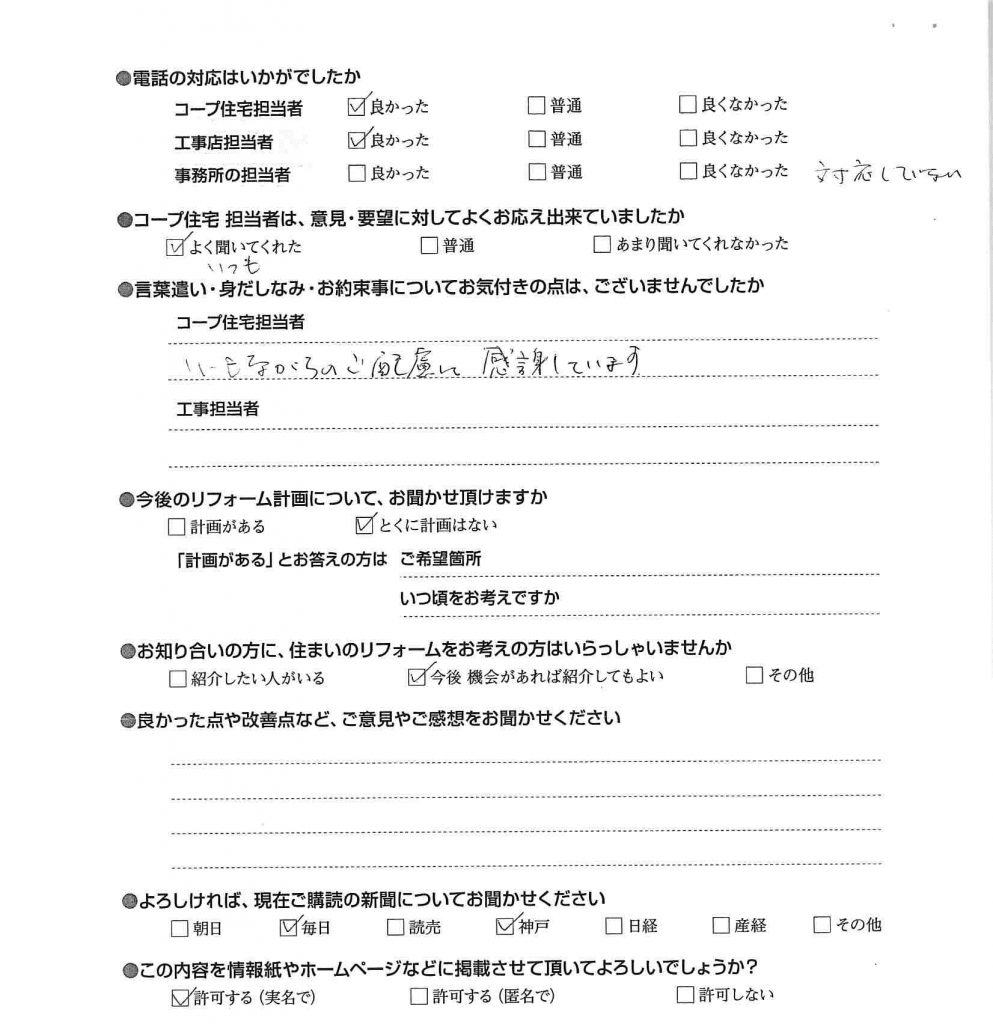 ●電話の対応はいかがでしたか
コープ住宅担当者 ☑良かった □普通 □良くなかった
工事店担当者 ☑良かった □普通 □良くなかった
事務所の担当者 □良かった □普通 □良くなかった 対応していない
●コープ住宅 担当者は、意見・要望に対してよくお応え出来ていましたか
☑よく聞いてくれた □普通 □あまり聞いてくれなかった
いつも
●言葉遣い・身だしなみ・お約束事についてお気付きの点は、ございませんでしたか
コープ住宅担当者
いつもながらのご配慮に 感謝しています
工事担当者
●今後のリフォーム計画について、お聞かせ頂けますか
□計画がある ☑とくに計画はない
「計画がある」とお答えの方は ご希望箇所
いつ頃をお考えですか
●お知り合いの方に、住まいのリフォームをお考えの方はいらっしゃいませんか
□紹介したい人がいる ☑今後 機会があれば紹介してもよい □その他
●良かった点や改善点など、ご意見やご感想をお聞かせください
●よろしければ、現在ご購読の新聞についてお聞かせください
□朝日 ☑毎日 □読売 ☑神戸 □日経 □産経 □その他
●この内容を情報紙やホームページなどに掲載させて頂いてよろしいでしょうか？
☑許可する（実名で） □許可する（匿名で） □許可しない